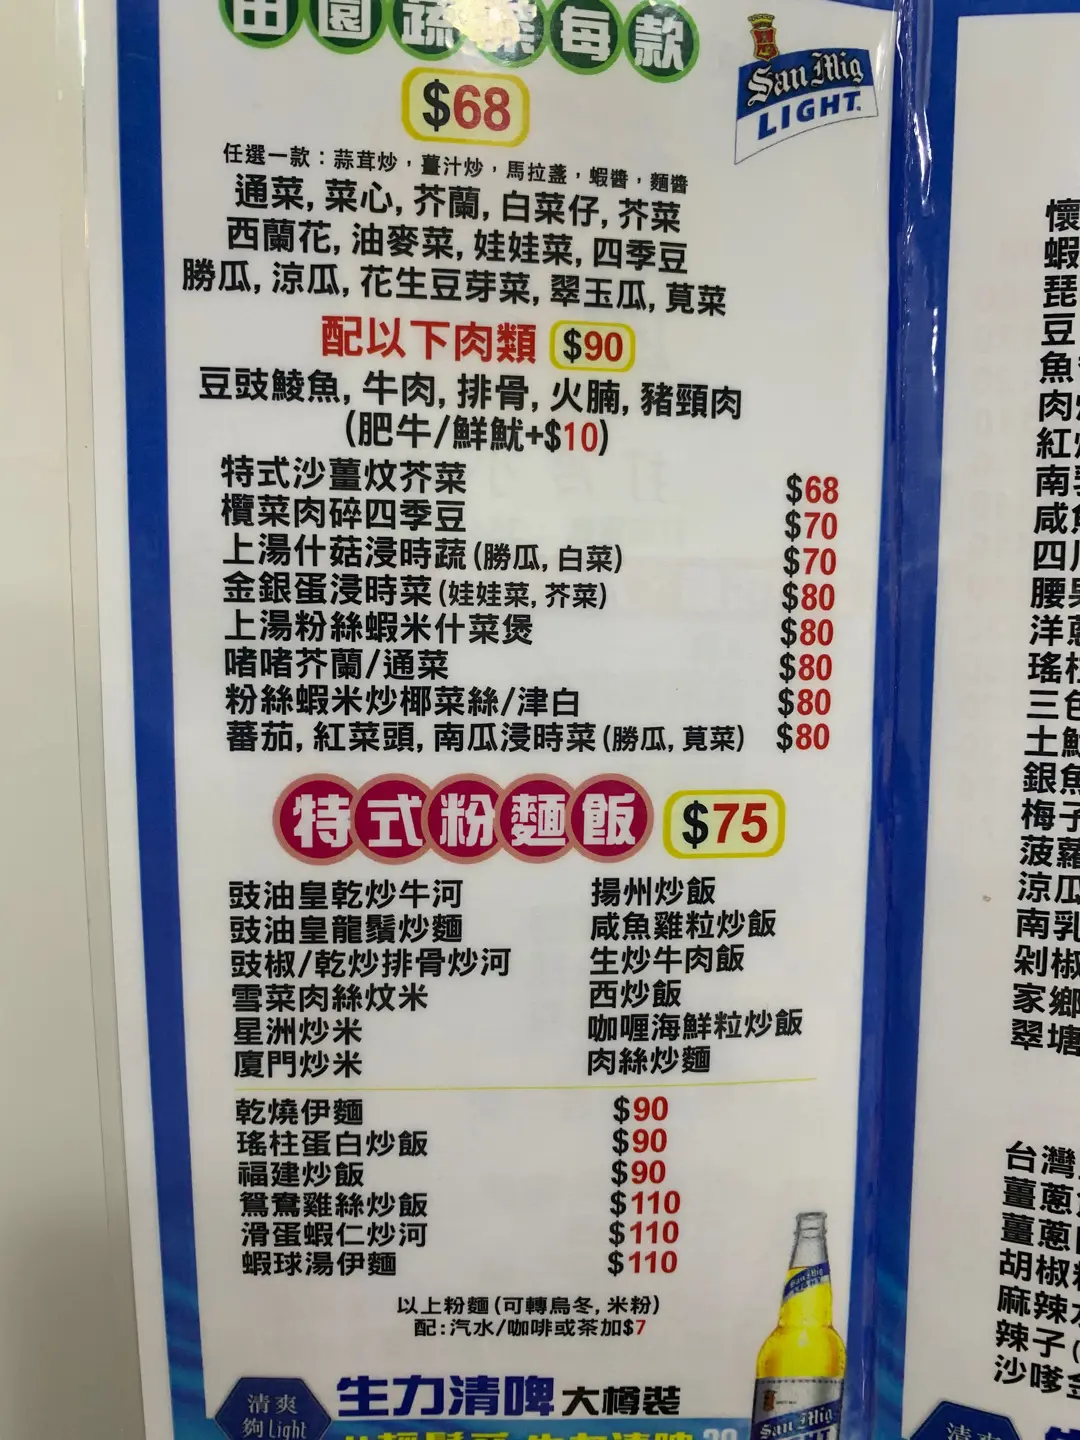 田園蔬菜每款
San Mig
LIGHT.
$68
任選一款：蒜茸炒，薑汁炒，馬拉盞，蝦醬，麵醬
通菜, 菜心, 芥蘭, 白菜仔, 芥菜
西蘭花, 油麥菜, 娃娃菜, 四季豆
勝瓜, 涼瓜, 花生豆芽菜, 翠玉瓜, 莧菜
配以下肉類 $90
豆豉鯪魚, 牛肉, 排骨, 火腩, 豬頸肉
(肥牛/鮮魷+$10)
特式沙薑炆芥菜 $68
欖菜肉碎四季豆 $70
上湯什菇浸時蔬 (勝瓜, 白菜) $70
金銀蛋浸時菜 (娃娃菜, 芥菜) $80
上湯粉絲蝦米什菜煲 $80
啫啫芥蘭/通菜 $80
粉絲蝦米炒椰菜絲/津白 $80
蕃茄, 紅菜頭, 南瓜浸時菜 (勝瓜, 莧菜) $80
特式粉麵飯 $75
豉油皇乾炒牛河
豉油皇龍鬚炒麵
豉椒/乾炒排骨炒河
雪菜肉絲炆米
星洲炒米
廈門炒米
揚州炒飯
咸魚雞粒炒飯
生炒牛肉飯
西炒飯
咖喱海鮮粒炒飯
肉絲炒麵
乾燒伊麵 $90
瑤柱蛋白炒飯 $90
福建炒飯 $90
鴛鴦雞絲炒飯 $110
滑蛋蝦仁炒河 $110
蝦球湯伊麵 $110
以上粉麵 (可轉烏冬, 米粉)
配：汽水/咖啡或茶加$7
清爽
夠Light
生力清啤 大樽裝
San Mig
San Mig
懷
蝦
琵
豆
魚
肉
紅
南
咸魚
四川
腰果
洋蔥
瑤柱
三色
土魷
銀魚
梅子
菠蘿
涼瓜
南乳
剁椒
家鄉
翠塘
台灣
薑蔥
薑蔥
胡椒
麻辣
辣子(
沙嗲
清爽